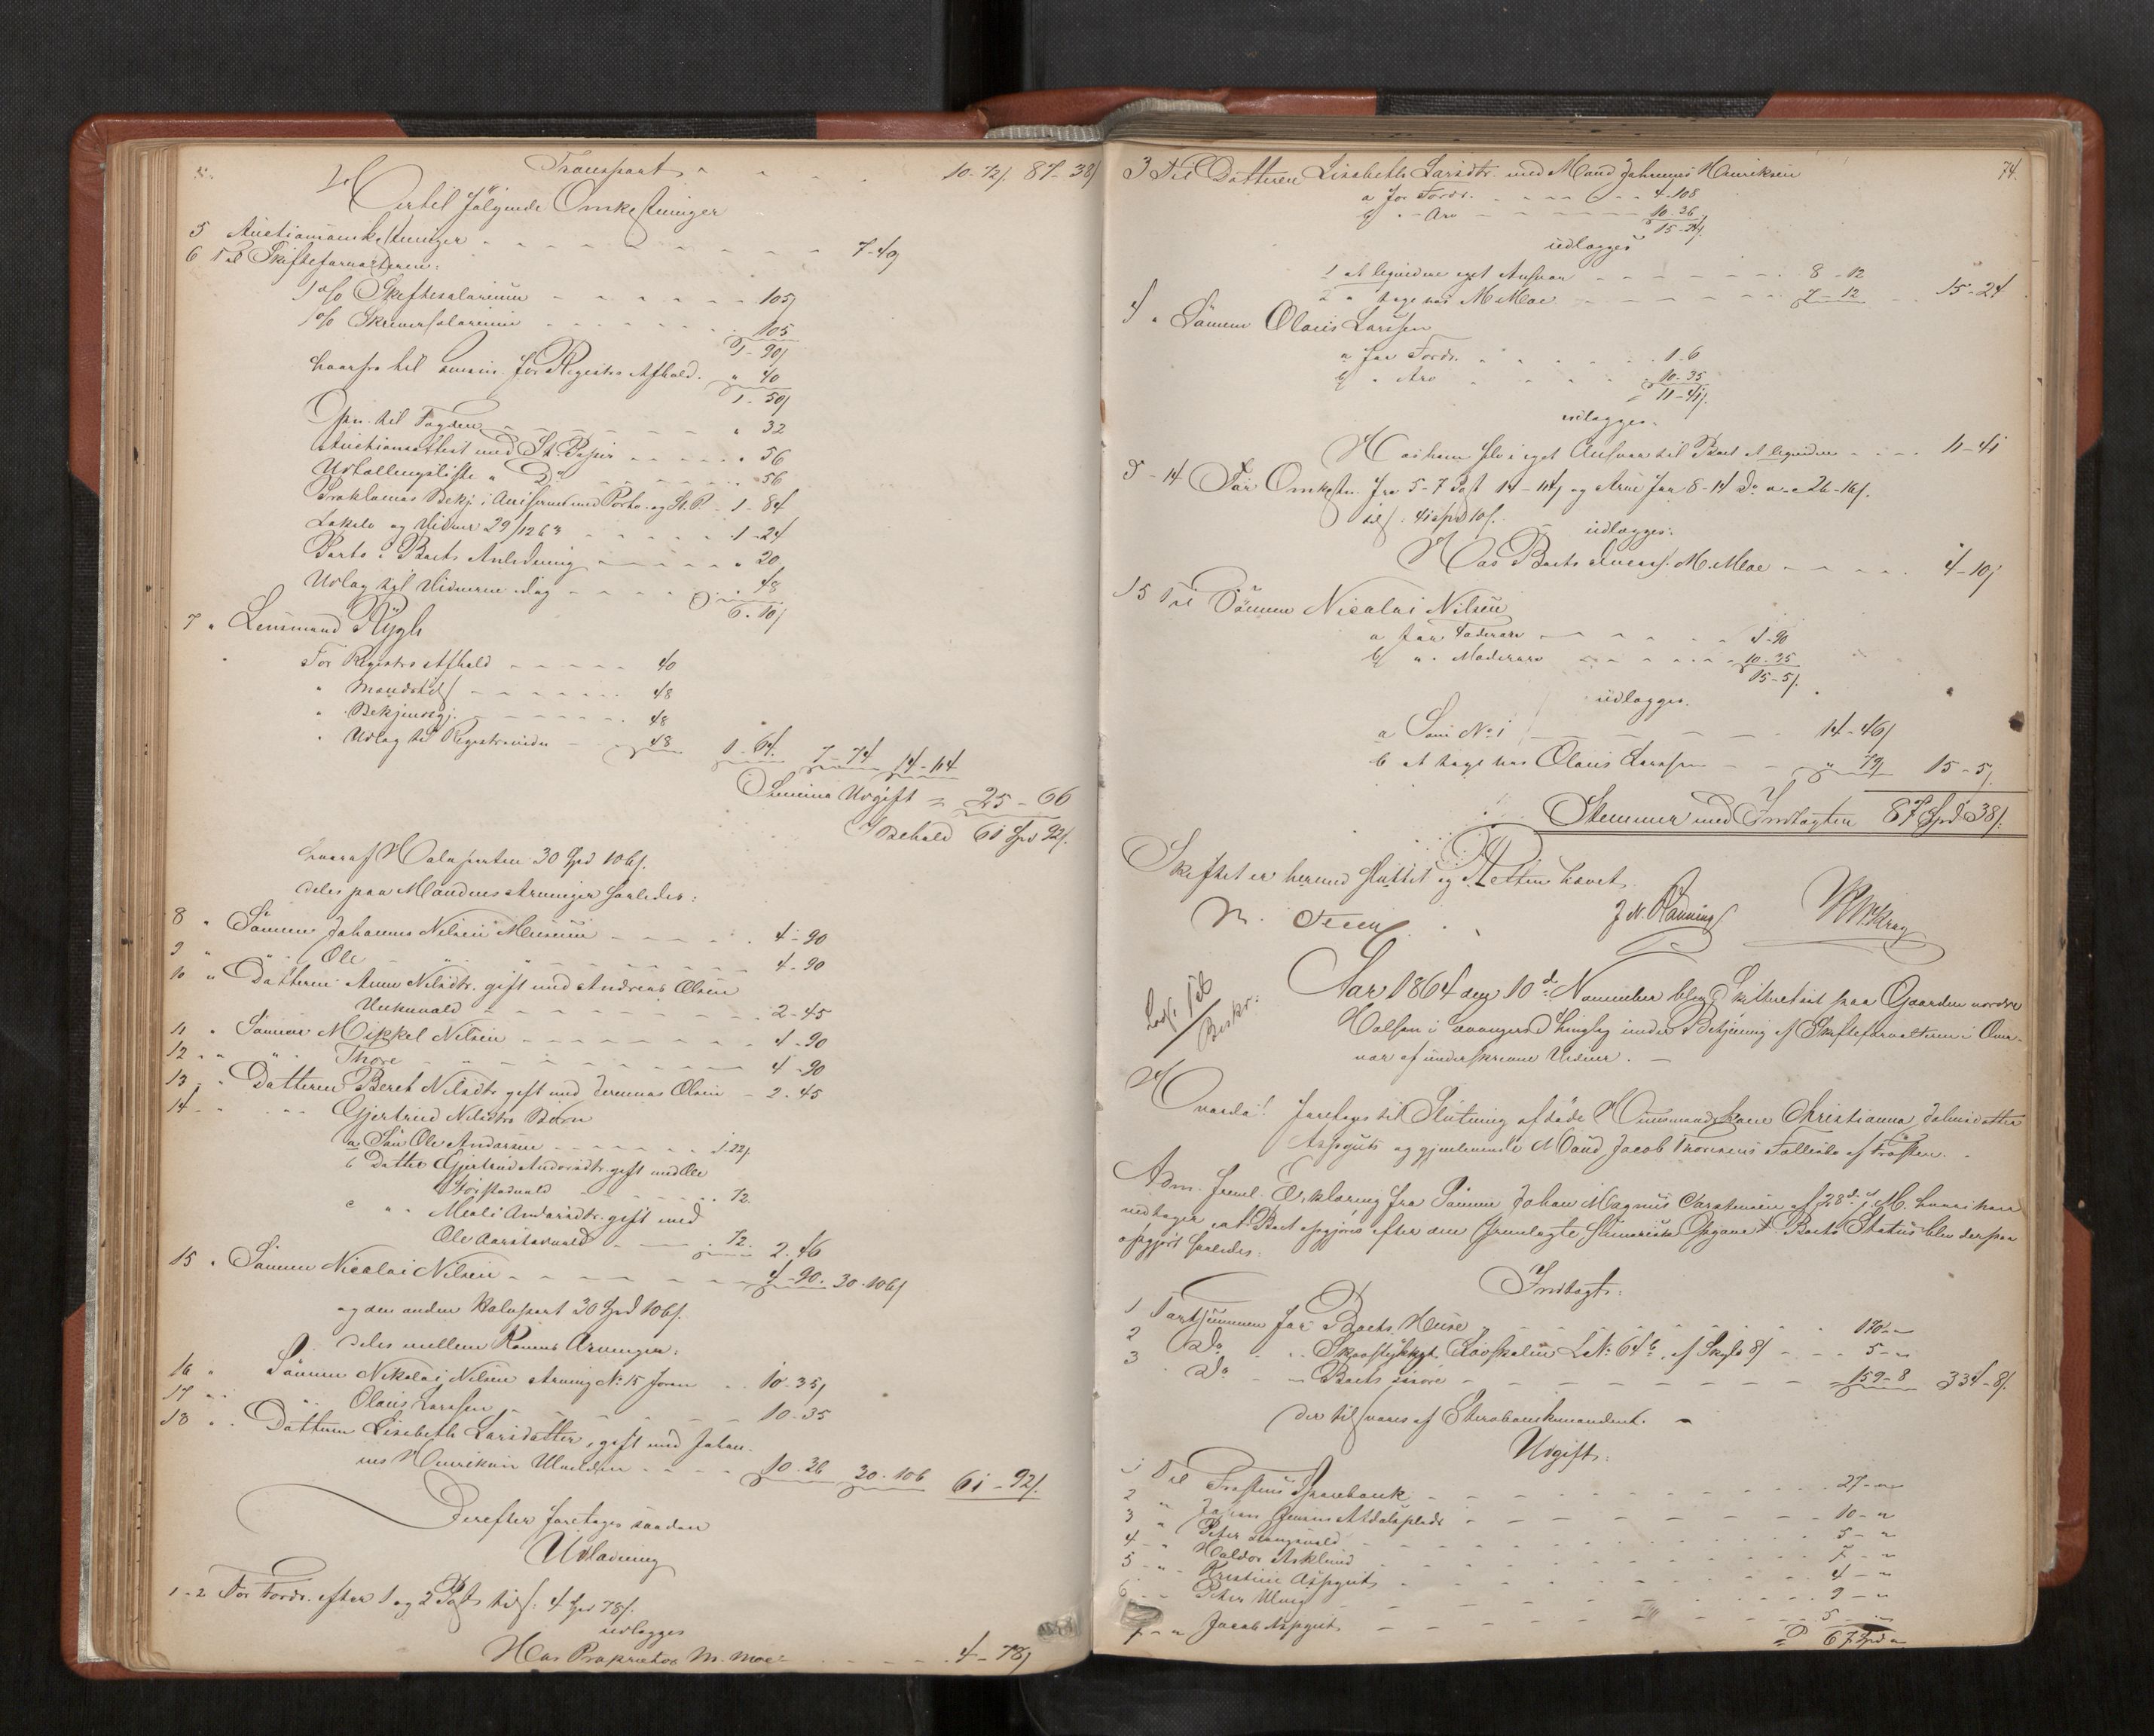 Transport 10-72/ 87-38/
Hertil følgende Omkostninger
5 Auctionsomkostninger 7-40/
6 Til Skifteforvalteren:
1 % Skiftesalarium 105/
1 % Skriversalarium 105
1-90/
hvorfra til for Registr. Afhold. " 40
1-50/
til Fogden " 32
Auctionsattest med St. Papir " 56
Udtællingsliste " Do " 56
Proklamas Bekj. i med Porto og St. P. 1-84
Lokale og Vidner 29/12 63 1-24
Porto i Boets Anledning " 20
Udlag til Vidnerne idag " 48
6-10/
7 " Lensmand Rygh
For Registr. Afhold 40
" Mændstils 48
" Bekjendtgj. 48
" Udlag til Registr. vidner 48 1-64 7-74 14-114
Summa Udgift = 25-66
I Behold 61 Spd 92/.
hvoraf Halvparten 30 Spd 106/.
deles paa Mandens Arvinger saaledes:
8 " Sønnen Johannes Nilsen 4-90
9 " " Ole " 4-90
10 " Datteren Anne Nilsdtr. gift med Andreas Olsen
2-45
11 " Sønnen Mikkel Nilsen 4-90
12 " " Thore " 4-90
13 " Datteren Beret Nilsdtr. gift med Olsen 2-45
14 " " Gjertrud Nilsdtrs Børn
a Søn Ole Andersen 1-22/
b Datter Gjertrud Andersdtr. gift med Ole
72
c " " Andersdtr. gift med
Ole 72 2-46
15 " Sønnen Nicolai Nilsen 4-90. 30-106/
og den anden Halvpart 30 Spd 106/.
deles mellem Konens Arvinger:
16 " Sønnen Nikolai Nilsen Arving No 15 foran 10-35/
17 " " Olaus Larssen 10-35
18 " Datteren Lisebeth Larsdatter, gift med Johan-
nes Henriksen 10-36 30-106 61-92/.
Derefter foretages saadan
Udlodning
1-2 For Fordr. efter 1 og 2 Post tils: 4 Spd 78/.
udlægges
Hos Proprietær M. Moe 4-78/
74.
3 Til Datteren Lisebeth Larsdtr. med Mand Johannes Henriksen
a for Fordr. 4-108
b " Arv 10-36
15-24/.
udlægges
1 at liqvidere eget Ansvar 8-12
2 " tage hos M Moe 7-12 15-24
4 " Sønnen Olaus Larssen
a for Fordr. 1-6
b " Arv 10-35
11-41/.
udlægges.
Hos ham selv i eget Ansvar til Boet at liqvidere 11-41
5-14 For Omkostn. fra 5-7 Post 14-114/ og Arve fra 8-14 Do 26-16/.
tils: 41 Spd 10/.
udlægges:
Hos Boets M. Moe 41-10/
15 Til Sønnen Nicolai Nilsen
a for Faderarv 4-90
b " Moderarv 10-35
15-5/.
udlægges.
a Som No 1 14-46/
b at tage hos Olaus Larssen " 79/ 15-5/.
Stemmer med Indtægten 87 Spd 38/.
Skiftet er hermed sluttet og Retten hævet
M. Steen
Aar 1864 den 10de November blev Skifteret sat paa Gaarden nordre
Halsan i Levangers Thinglag under Betjening af Skifteforvalteren i Over-
vær af underskrevne Vidner.
Hvorda! foretoges til Slutning afdøde Huusmandskone Christianna
og gjenlevende Mand Jacob Fællesbo af Frosten.
Adm. freml. Erklæring fra Sønnen Johan Magnus af 28de f. M. hvori han
vedtager, at Boet opgjøres efter den fremlagte summariske Opgave. Boets Status blev derpaa
opgjort saaledes:
Indtægt:
1 Taxtsummen for Boets Huse 170-"
2 Do " L. No: 64b, af Skyld 8/ 5-"
3 Do " Boets 159-8 334-8/.
der tilsvares af Sterbboenkemanden.
Udgift:
1 Til Frostens Sparebank 27-"
2 " 10-"
3 " Peter 5-"
4 " Haldor Asklund 7-"
5 " Kristine 4-"
6 " Peter 9-"
7 " Jacob 5-"
67 Spd "